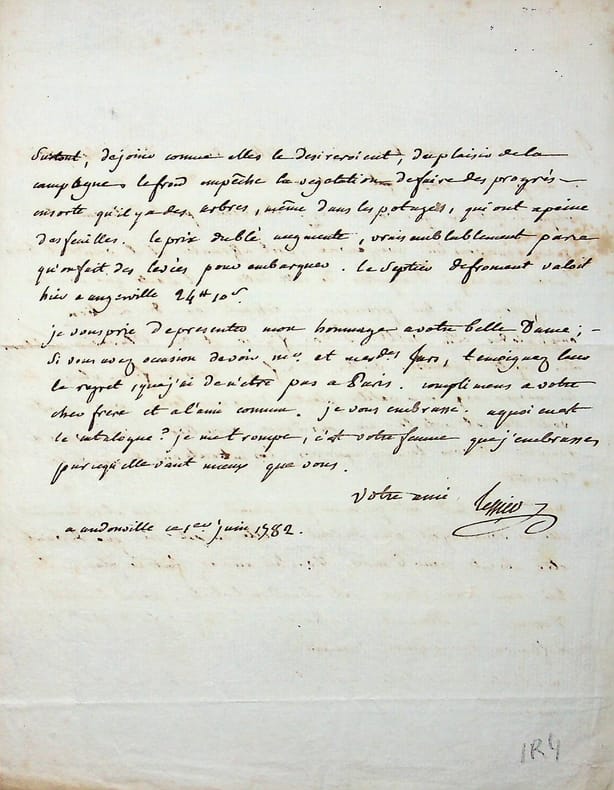 surtout, de jouir comme elles le desireroient, du plaisir de la
campagne le froid empêche la vegetation de faire des progrès
ensorte qu'il y a des arbres, même dans les potagés, qui ont apeine
des feuilles. le prix du blé augmente, vraisemblablement parce
qu'on fait des levées pour embarquer. le septier de froment valoit
hier a angerville 24tt 10s.
je vous prie de presenter mon hommage a votre belle Dame; -
si vous avez occasion de voir mr. et mesdes , temoignez leur
le regret, que j'ai de n'etre pas a Paris. complimens a votre
cher frere et a l'ami commun. je vous embrasse. aquoi en est
le catalogue? je me trompe, c'est votre femme que j'embrasse
parcequ'elle vaut mieux que vous.
votre ami Tessier
a andonville ce 1er juin 1782.
1R4